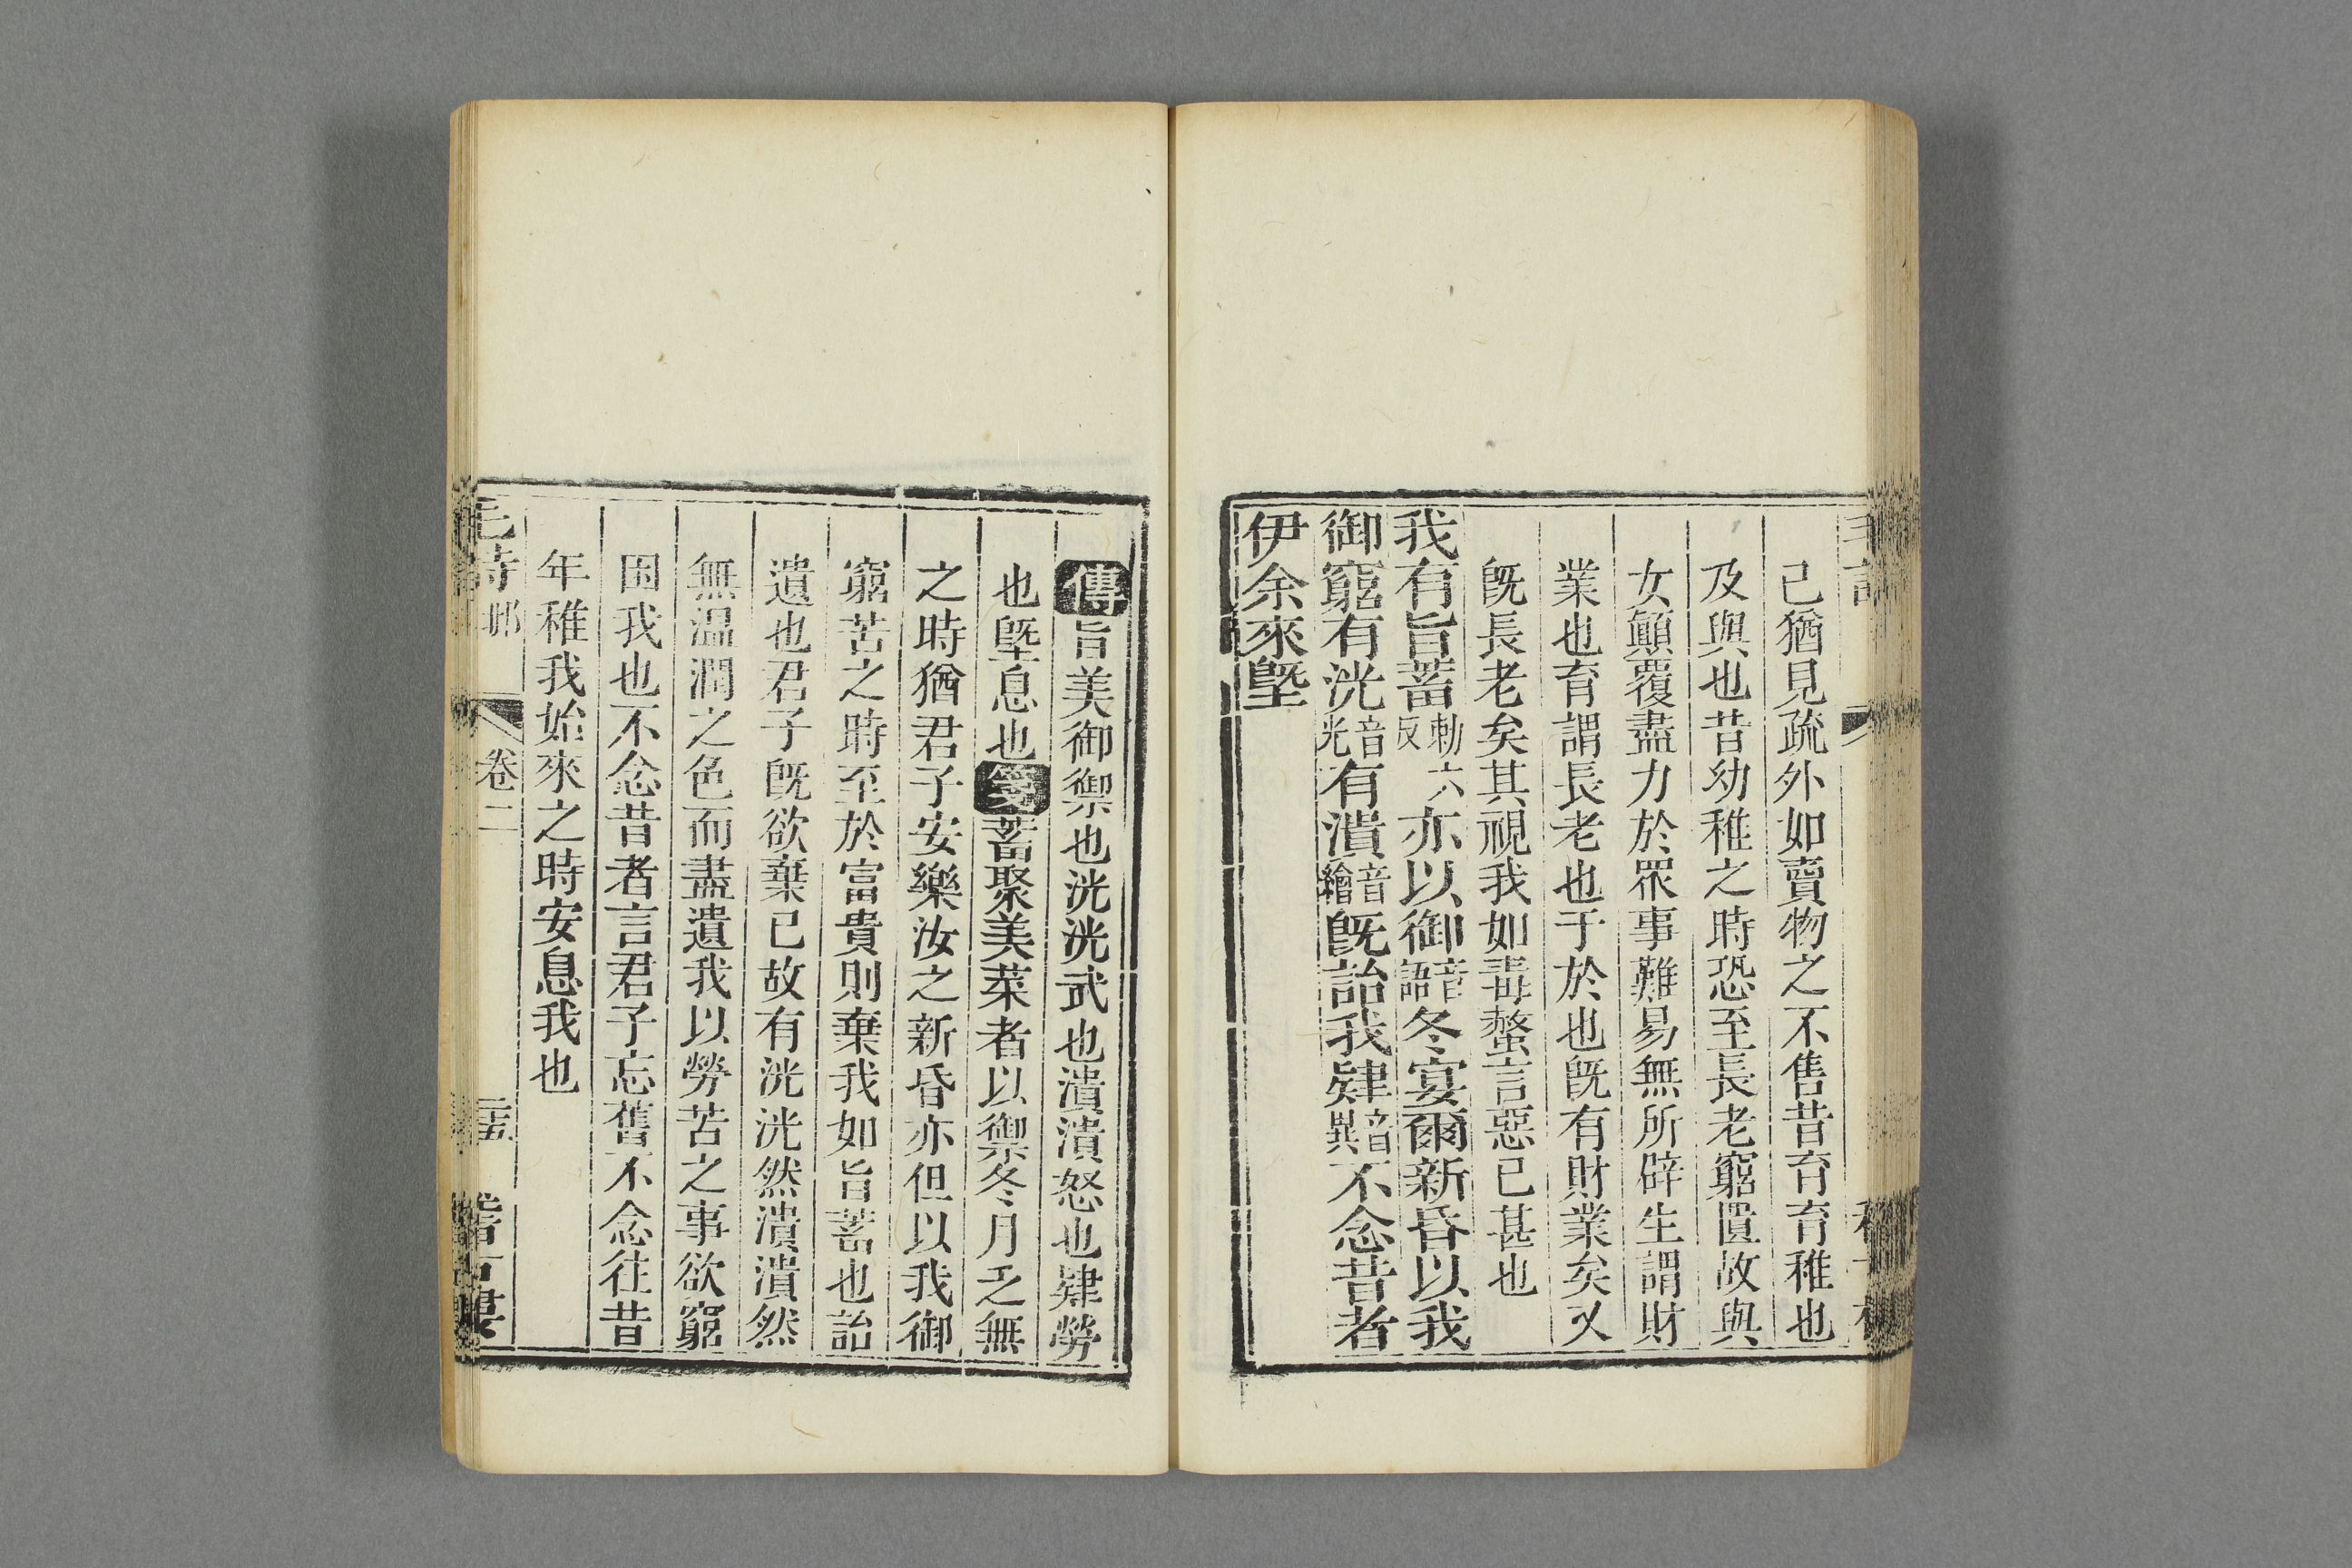 己猶見疏外如賣物之不售昔育育稚也
及與也昔幼稚之時恐至長老窮匱故與
女顚覆盡力於眾事難易無所辟生謂財
業也育謂長老也于於也旣有財業矣又
旣長老矣其視我如毒螫言惡已甚也
我有旨蓄勑六反亦以御音語冬宴爾新昏以我
御窮有洸音光有潰音繪旣詒我肄音異不念昔者
伊余來墍
傳旨美御禦也洸洸武也潰潰怒也肄勞
也墍息也箋蓄聚美菜者以禦冬月乏無
之時猶君子安樂汝之新昏亦但以我御
窮苦之時至於富貴則棄我如旨蓄也詒
遺也君子旣欲棄已故有洸洸然潰潰然
無温潤之色而盡遺我以勞苦之事欲窮
困我也不念昔者言君子忘舊不念往昔
年稚我始來之時安息我也
毛詩 邶 卷二 稽古樓